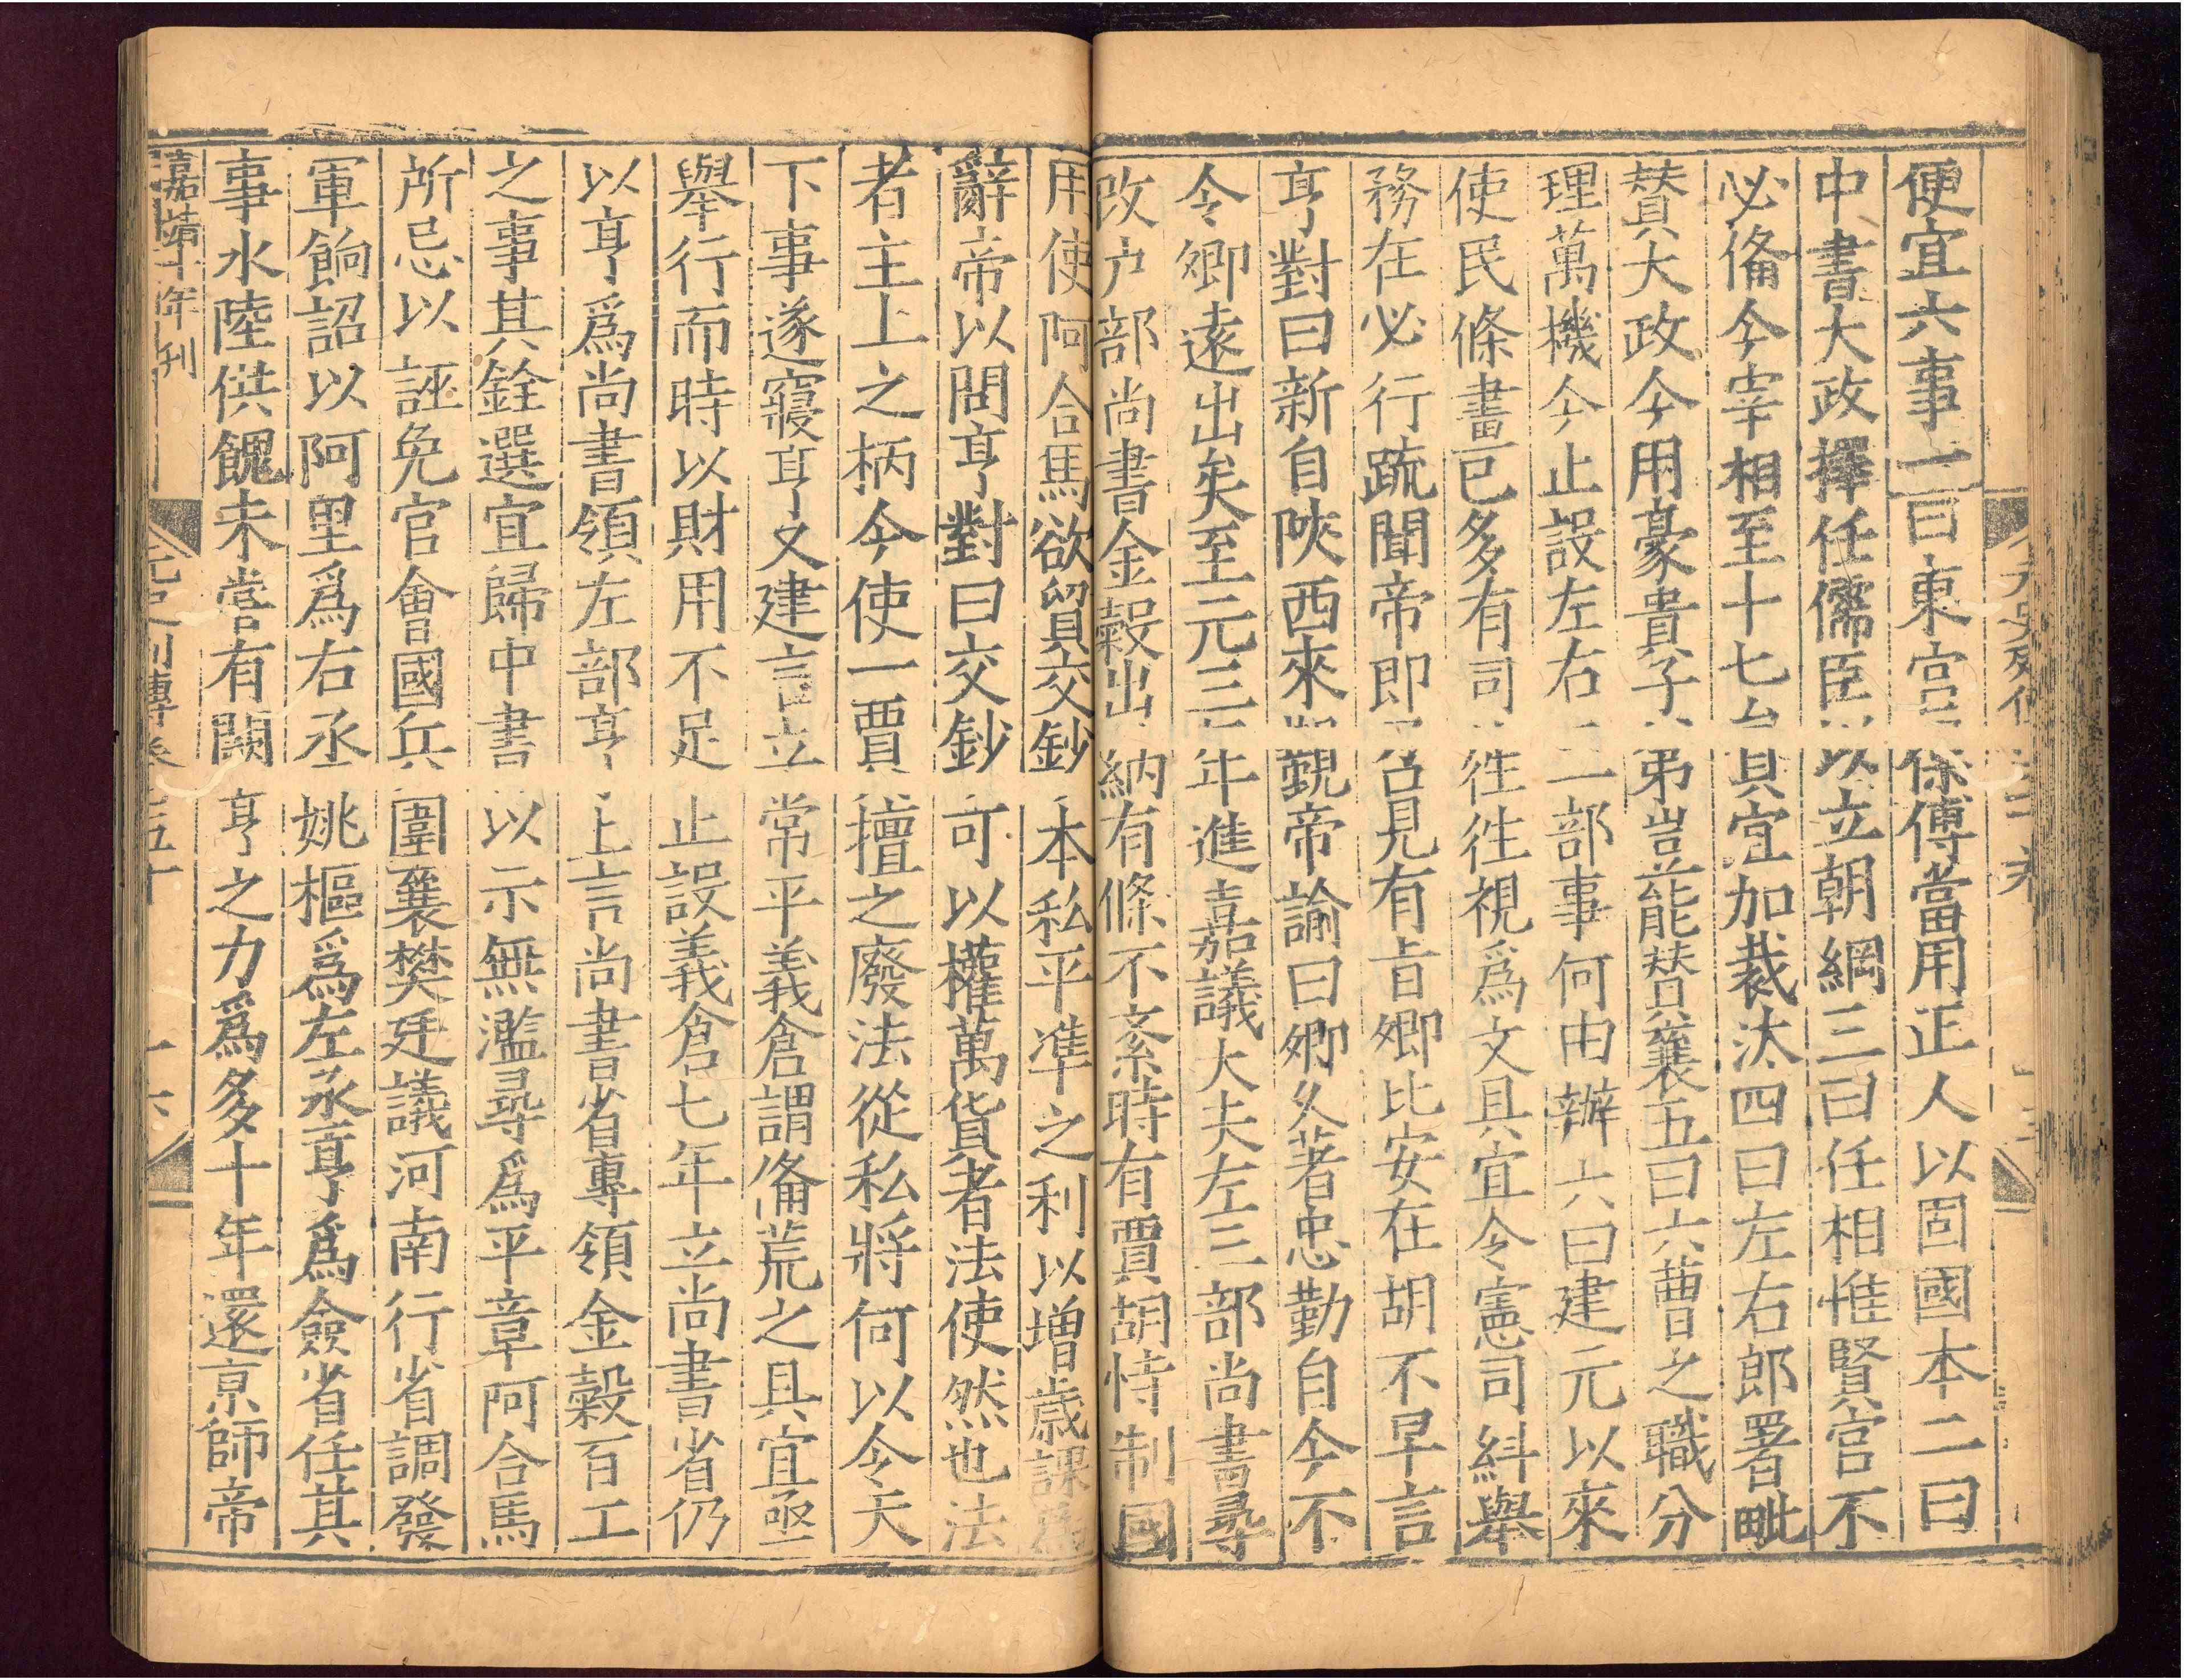 便宜六事一曰東宮保傅當用正人以固國本二曰
中書大政擇任儒臣以立朝綱三曰任相惟賢官不
必備今宰相至十七員宜加裁汰四曰左右郎署毗
賛大政今用豪貴子弟豈能賛襄五曰六曹之職分
理萬機今止設左右二部事何由辦六曰建元以來
使民條畫已多有司徃徃視爲文具宜令憲司糾舉
務在必行䟽聞帝即召見有旨卿比安在胡不早言
亨對曰新自陝西來覲帝諭曰卿久著忠勤自今不
令卿遠出矣至元三年進嘉議大夫左三部尚書尋
改户部尚書金榖出納有條不紊時有賈胡恃制國
用使阿合馬欲貿交鈔本私平凖之利以增歲課爲
辭帝以問亨對曰交鈔可以權萬貨者法使然也法
者主上之柄今使一賈擅之廢法從私將何以令天
下事遂寢亨又建言立常平義倉謂備荒之具宜亟
舉行而時以財用不足止設義倉七年立尚書省仍
以亨爲尚書領左部亨上言尚書省專領金榖百工
之事其銓選宜歸中書以示無濫尋爲平章阿合馬
所忌以誣免官會國兵圍襄樊廷議河南行省調發
軍餉詔以阿里爲右丞姚樞爲左丞亨爲僉省任其
事水陸供餽未嘗有闕亨之力爲多十年還京師帝
嘉靖十年刊
元史列傳卷五十
十六